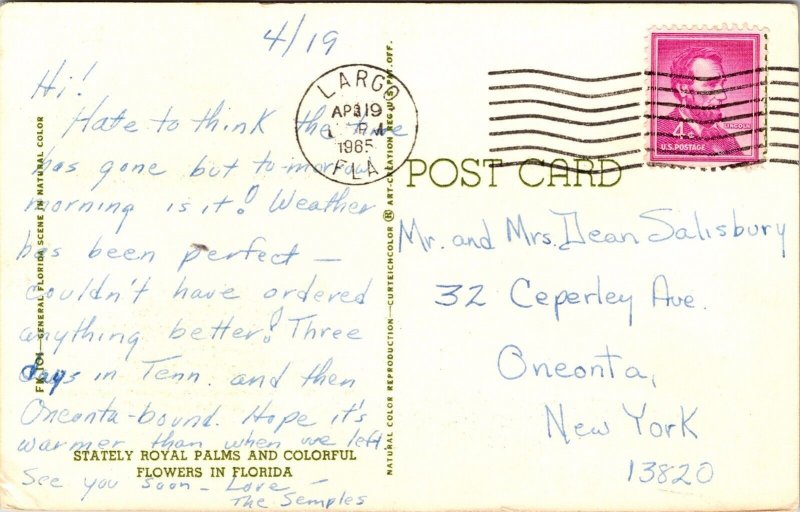 4/19
Hi!
Hate to think the time
has gone but to-morrow
morning is it! Weather
has been perfect —
couldn't have ordered
anything better! Three
days in Tenn. and then
Oneonta-bound. Hope it's
warmer than when we left.
See you soon — Love —
The Semples
STATELY ROYAL PALMS AND COLORFUL
FLOWERS IN FLORIDA
GENERAL FLORIDA SCENE IN NATURAL COLOR
NATURAL COLOR REPRODUCTION—CURTEICHCOLOR ® ART-CREATION REG. U.S. PAT. OFF.
LARGO
APR 19
PM
1965
FLA
POST CARD
4¢
LINCOLN
U.S. POSTAGE
Mr. and Mrs. Dean Salisbury
32 Ceperley Ave.
Oneonta,
New York
13820